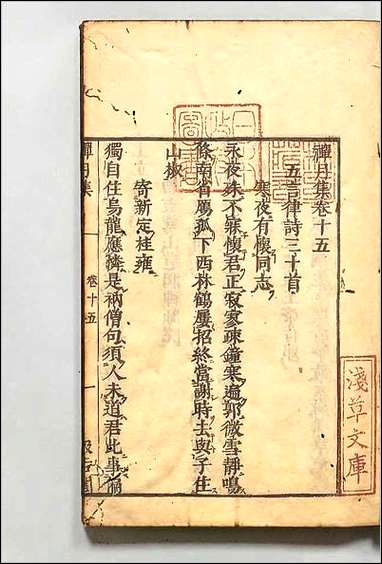 禪月集卷十五
五言律詩三十首
寒夜有懷同志
永夜殊不寐懷君正寂寥疎鐘寒遍郭微雪靜鳴
條南省雁孤下西林鶴屢招終當謝時去與子住
山椒
寄新定桂雍
獨自住烏龍應憐是衲僧句須人未道君此事
禪月集
卷十五
一
淺草文庫